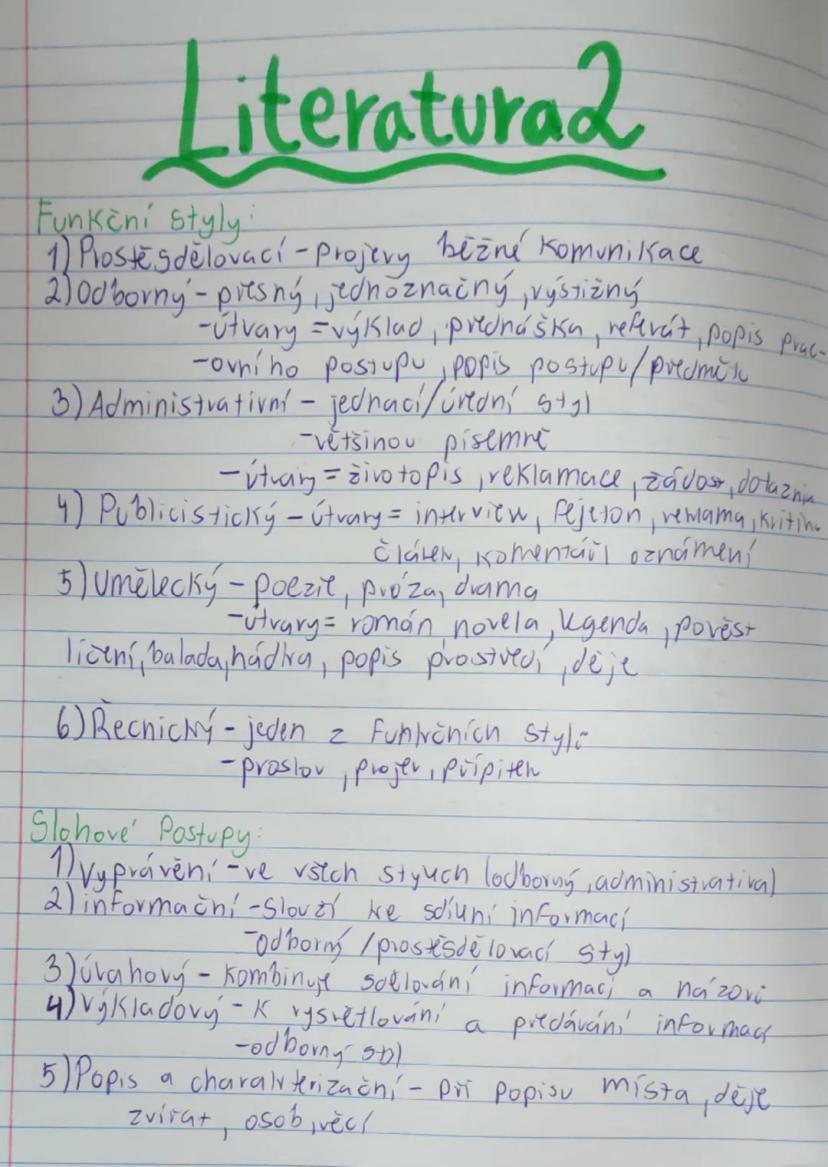 Literatura 2
Funkční styly:
1) Prostěsdělovací - projevy běžné komunikace
2) Odborný - přesný, jednoznačný, výstižný
- útvary = výklad, přednáška, referát, popis prac-
- ovního postupu, popis postupu/předmětu
3) Administrativní - jednací/úřední styl
- většinou písemné
- útvary = životopis, reklamace, žádost, dotazník
4) Publicistický - útvary = interview, fejeton, reklama, kritika
článek, komentář, oznámení
5) Umělecký - poezie, próza, drama
- útvary = román, novela, legenda, pověst
líčení, balada, hádka, popis prostředí, děje
6) Řečnický - jeden z funkčních stylů
- proslov, projev, přípitek
Slohové Postupy:
1) Vyprávění - ve všech stylech (odborný, administrativa)
2) informační - Slouží ke sdílení informací
- odborný / prostěsdělovací styl
3) úvahový - kombinuje sdělování informací a názorů
4) výkladový - k vysvětlování a předávání informací
- odborný styl
5) Popis a charakterizační - při popisu místa, děje
zvířat, osob, věcí